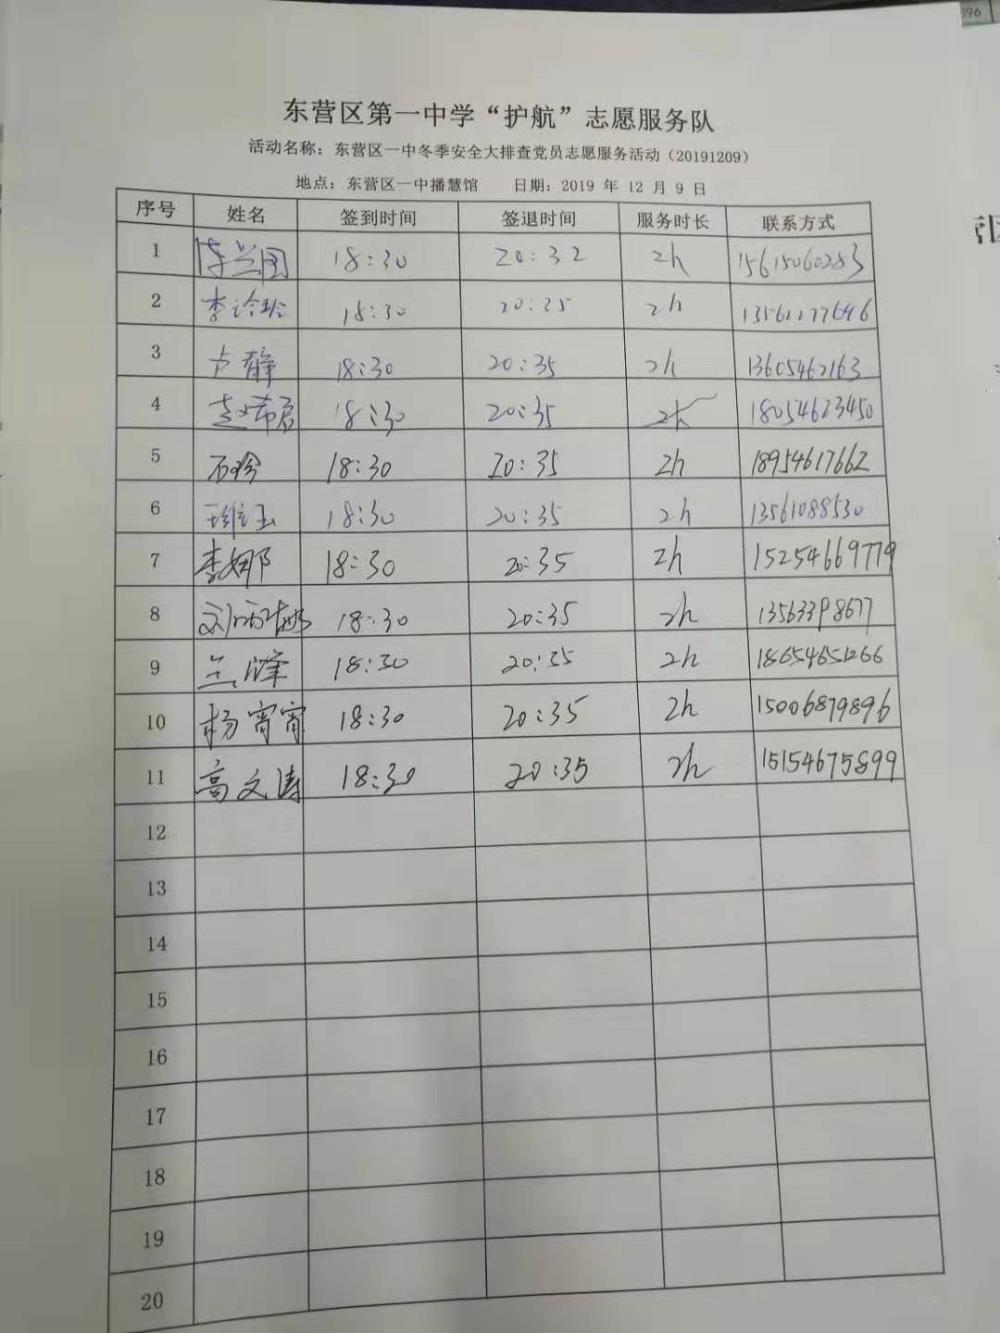 东营区第一中学“护航”志愿服务队
活动名称：东营区一中冬季安全大排查党员志愿服务活动（20191209）
地点：东营区一中播慧馆 日期：2019 年 12 月 9 日
序号 姓名 签到时间 签退时间 服务时长 联系方式
1 18:30 20:32 2h 15615060283
2 18:30 20:35 2h
3 卢静 18:30 20:35 2h 13605462163
4 赵希君 18:30 20:35 2h 18054623450
5 石珍 18:30 20:35 2h 18954617662
6 18:30 20:35 2h 13561088530
7 李娜 18:30 20:35 2h 15254669779
8 18:30 20:35 2h 13563398677
9 兰峰 18:30 20:35 2h 18654651266
10 杨宵宵 18:30 20:35 2h 15006879896
11 高文涛 18:30 20:35 2h 15154675899
12
13
14
15
16
17
18
19
20